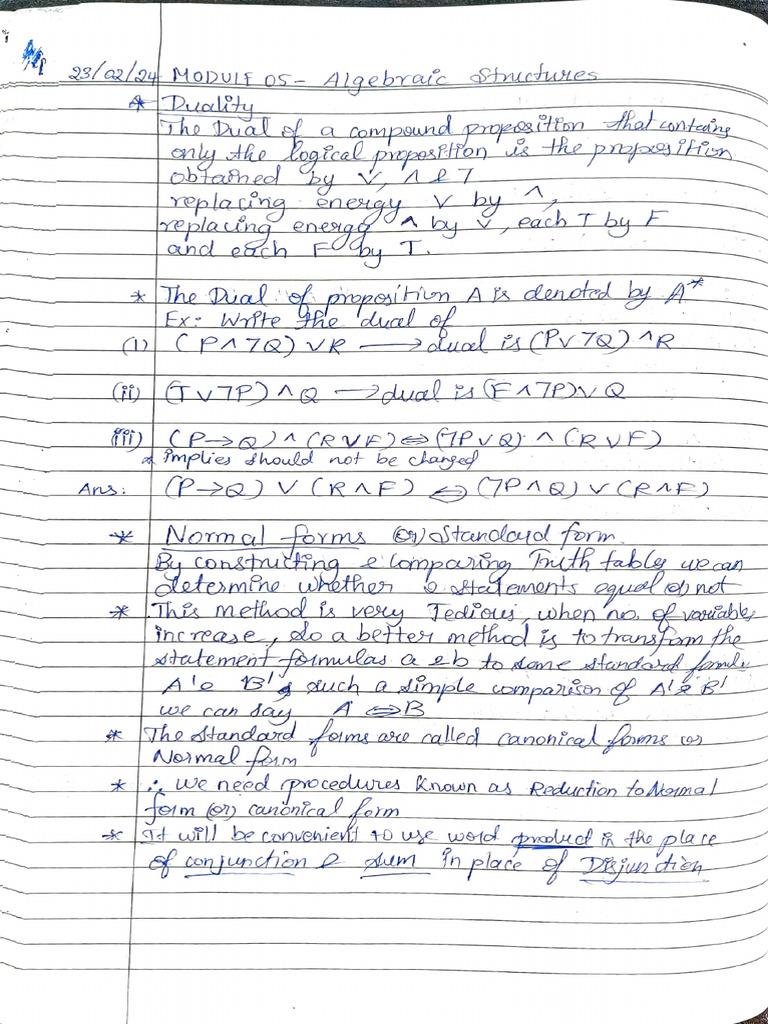 23/02/24 MODULE 05 - Algebraic Structures
* Duality
The Dual of a compound proposition that contains
only the logical proposition is the proposition
obtained by ∨, ∧ & ⅂
replacing energy ∨ by ∧,
replacing energy ∧ by ∨, each T by F
and each F by T.
* The Dual of proposition A is denoted by A*
Ex: Write the dual of
(i) (P∧⅂Q) ∨R ⟶ dual is (P∨⅂Q) ∧R
(ii) (T∨⅂P) ∧ Q ⟶ dual is (F∧⅂P)∨ Q
(iii) (P→Q) ∧ (R∨F) ⇔ (⅂P∨Q) ∧ (R∨F)
* implies should not be changed
Ans: (P→Q) ∨ (R∧F) ⇔ (⅂P∧Q) ∨ (R∧F)
* Normal forms (or) Standard form.
By constructing & comparing Truth tables we can
determine whether 2 statements equal or not
* This method is very Tedious, when no. of variables
increase, so a better method is to transform the
statement formulas a & b to some standard forms
A' & B' such a simple comparison of A' & B'
we can say A ⇔ B
* The Standard forms are called canonical forms or
Normal form
* ∴ we need procedures known as Reduction to Normal
form (or) canonical form
* It will be convenient to use word product in the place
of conjunction & sum in place of Disjunction